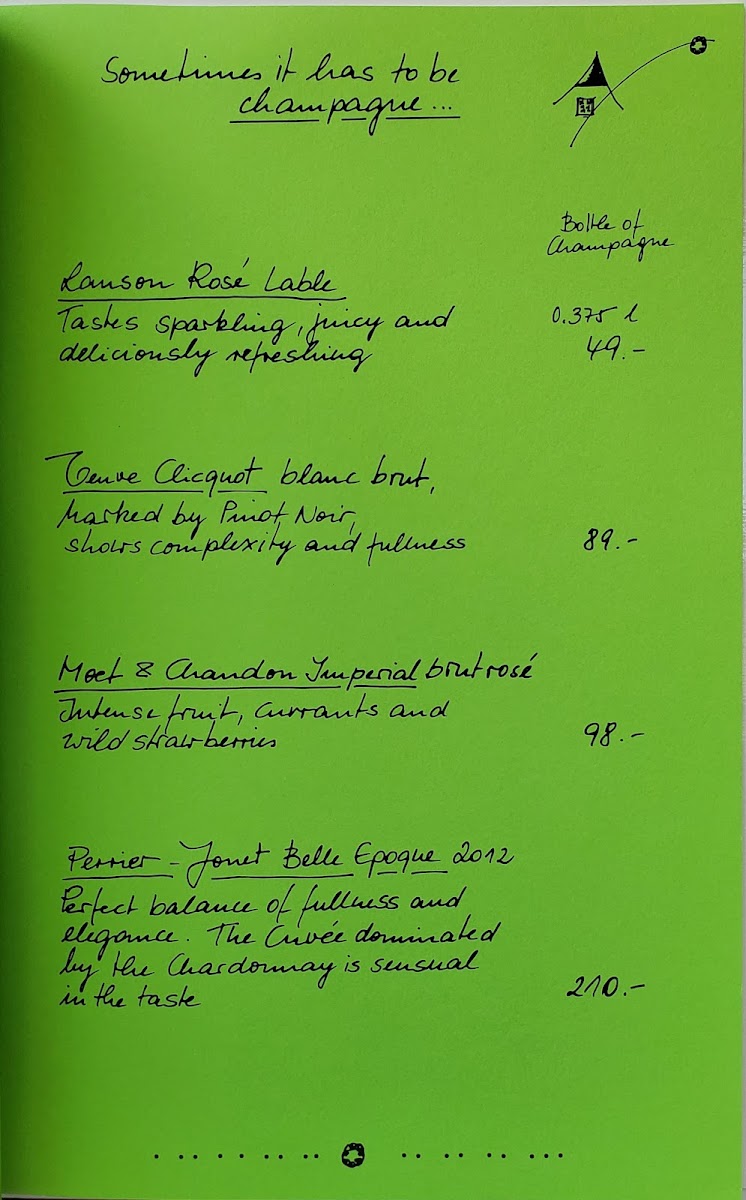 Sometimes it has to be
champagne...
Bottle of
Champagne
Lanson Rosé Lable
Tastes sparkling, juicy and
deliciously refreshing
0.375 l
49.-
Veuve Clicquot blanc brut,
Marked by Pinot Noir,
shows complexity and fullness
89.-
Moet & Chandon Imperial brut rosé
Intense fruit, currants and
wild strawberries
98.-
Perrier-Jouet Belle Epoque 2012
Perfect balance of fullness and
elegance. The Cuvée dominated
by the Chardonnay is sensual
in the taste
210.-